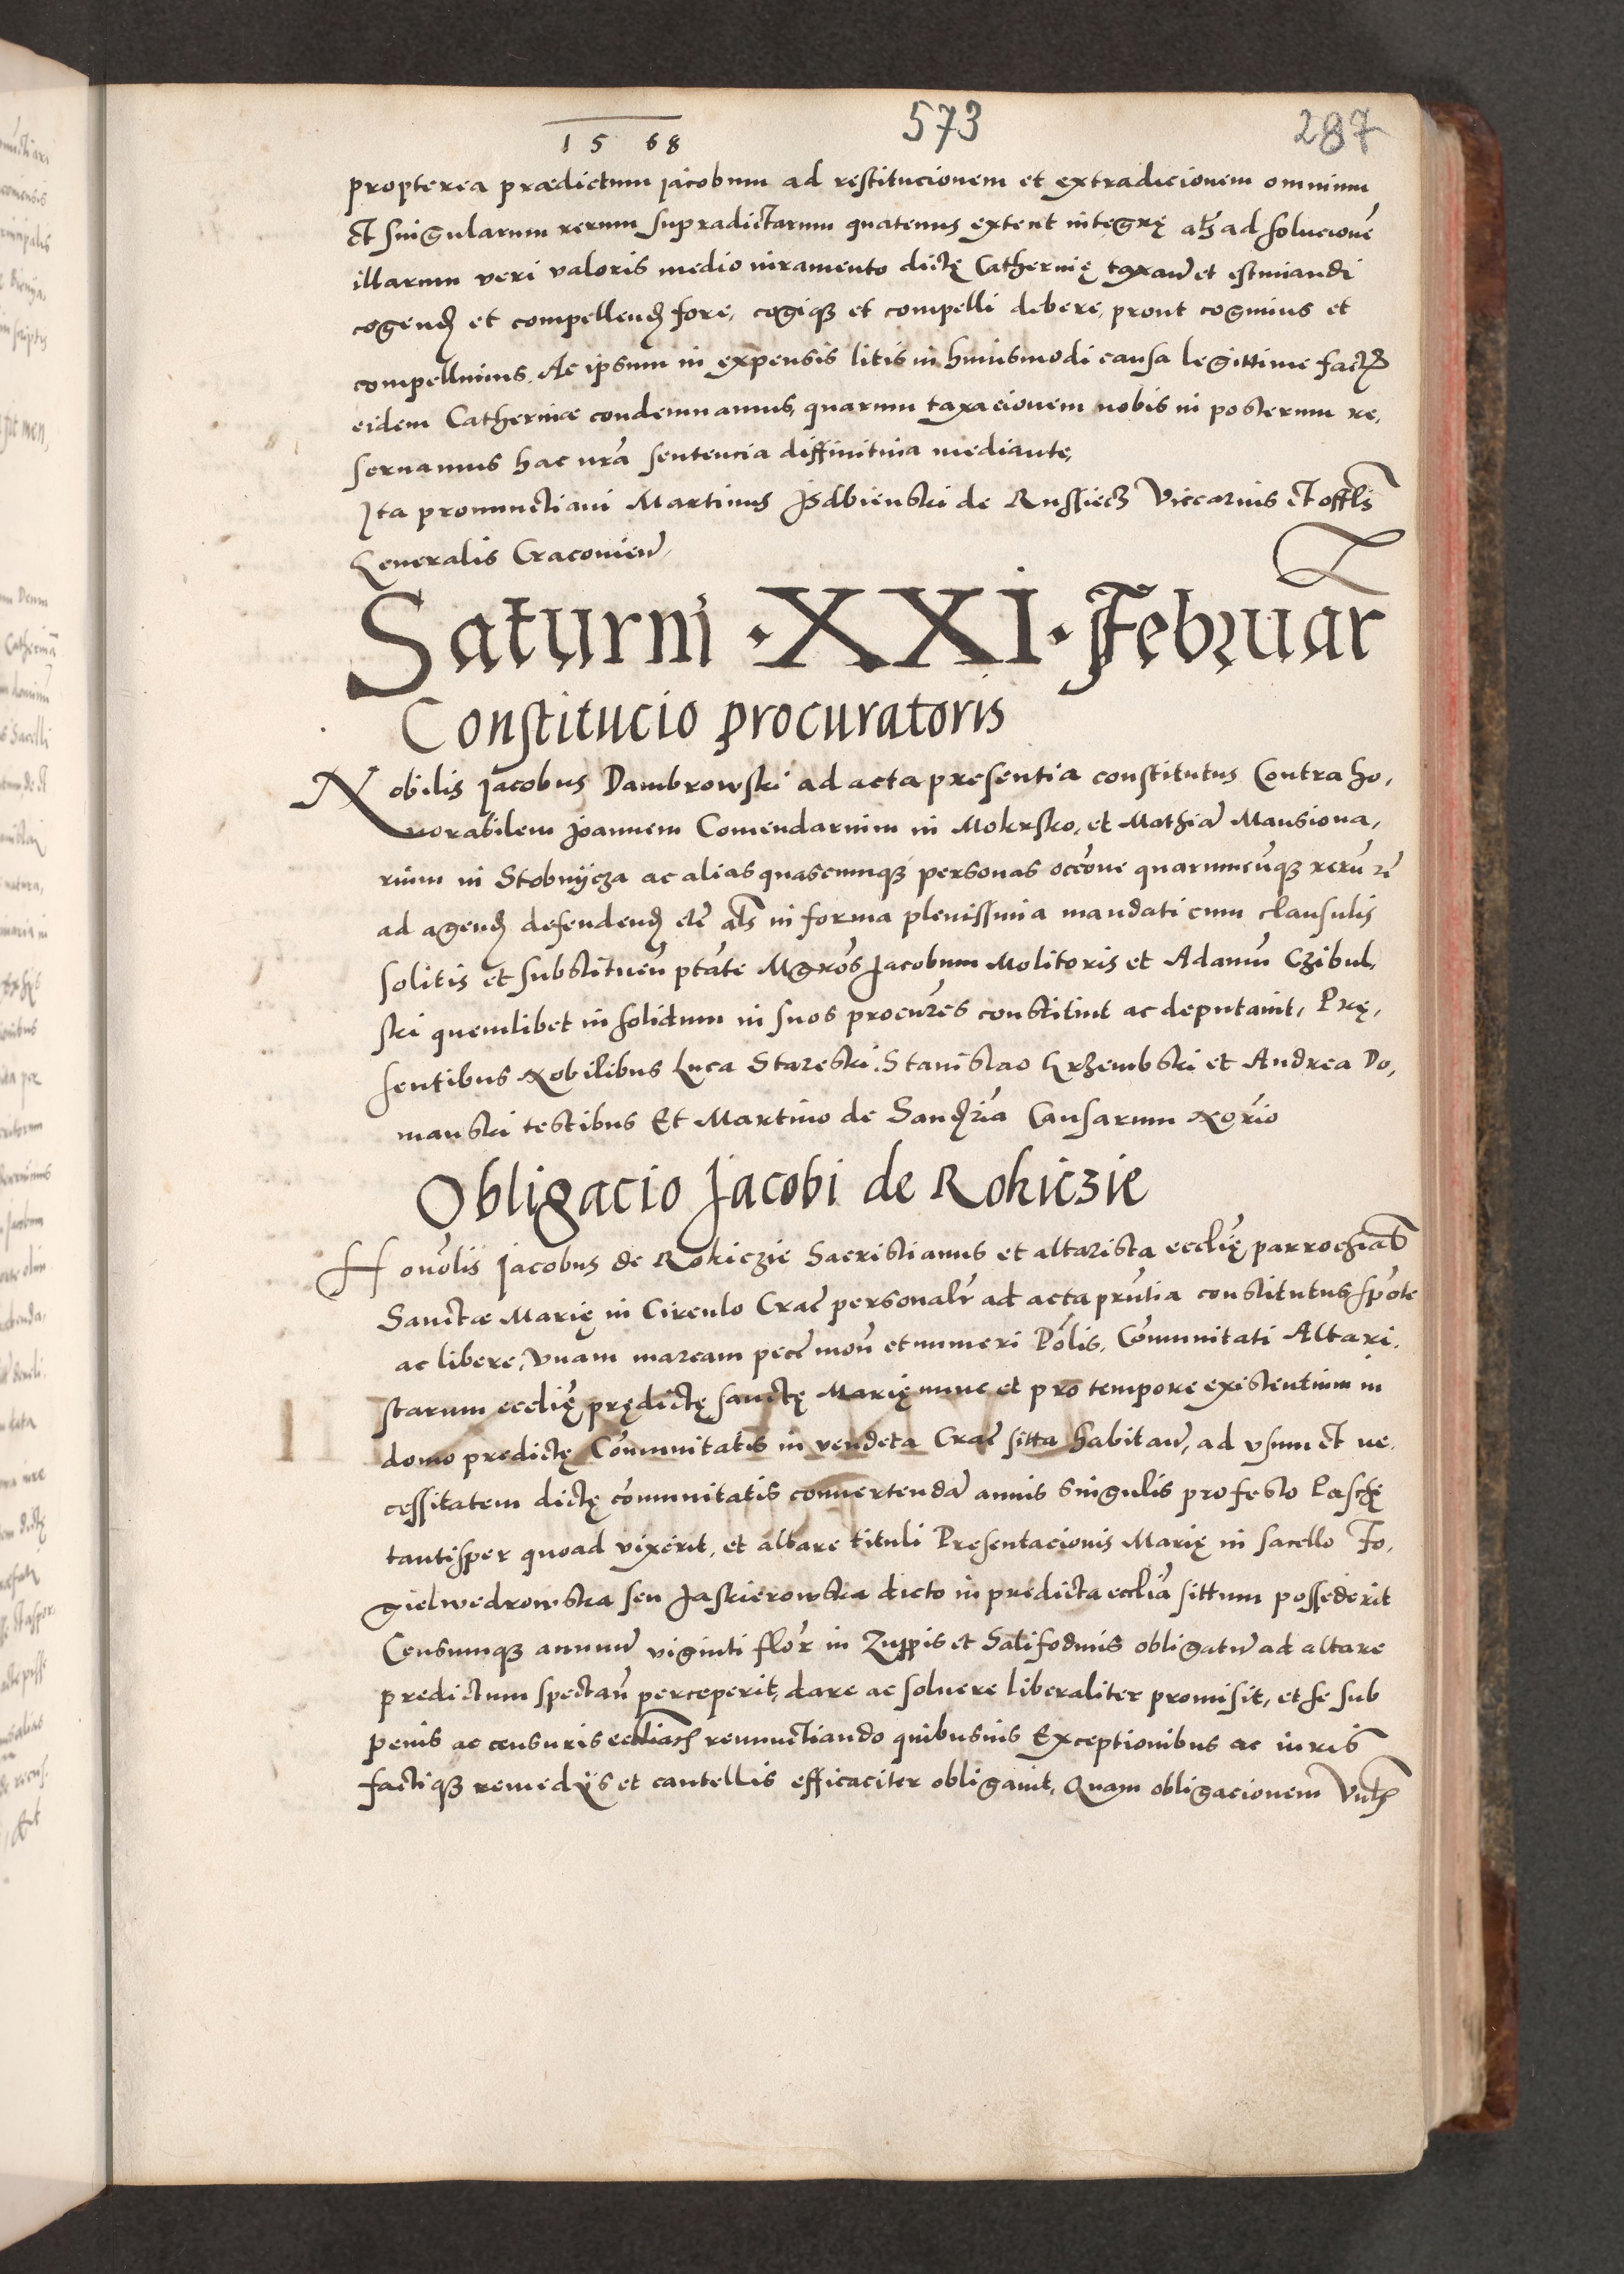 1568
573
287
propterea prædictum Jacobum ad restitucionem et extradicionem omnium
et singularum rerum supradictarum quatenus extent integrę als ad solucionē
illarum veri valoris medio iuramento dictę Catherinę taxan̄ et estimandi
cogend et compellend fore, cogiqꝫ et compelli debere, prout cogimus et
compellimus. Ac ipsum in expensis litis in huiusmodi causa legittime fact
eidem Catherinæ condemnamus, quarum taxacionem nobis in posterum re,
servamus hac nr̄a sentencia diffinitiva mediante,
Ita pronunctiavi Martinus Isdbienski de Russiecz Viccarius et offl̄s
Generalis Cracovien̄
Saturni · XXI · Februar
Constitucio procuratoris
Nobilis Jacobus Dambrowski ad acta presentia constitutus Contra ho,
norabilem Joannem Comendarium in Mokrsko, et Mathiā Mansiona,
rium in Stobnycza ac alias quascumqꝫ personas occōne quarumcūqꝫ rerū
ad agend defendend etc̄ als in forma plenissima mandati cum clausulis
solitis et substituen̄ ptāte Mgrōs Jacobum Molitoris et Adamū Czibul,
ski quemlibet in solidum in suos procūres constituit ac deputavit, Prę,
sentibus Nobilibus Luca Stareski, Stanislao Grzembski et Andrea Do,
manski testibus Et Martino de Sandria Causarum Norio
Obligacio Jacobi de Rokiczie
Honōlis Jacobus de Rokiczie Sacristianus et altarista eccliē, parrochial
Sanctæ Marię in Circulo Crac̄ personalr̄ ad acta prn̄tia constitutus, spōte
ac libere, Vnam marcam pecc̄ mon̄ et numeri Pōlis, Cōmunitati Altari,
starum eccliē, prędictę sanctę Marię nunc et pro tempore existentium in
domo predictę Cōmunitatis in vendeta Crac̄ sitta habitan̄, ad vsum et ne,
cessitatem dictę cōmunitatis convertendā annis singulis pro festo Paschę
tantisper quoad vixerit, et altare tituli Presentacionis Marię in sacello Fo,
gielwedrowska seu Jaskierowska dicto in predicta ecclia sittum possederit
Censumqꝫ annuū viginti flor̄ in Zuppis et Salifodinis obligatū ad altare
predictum spectan̄ perceperit, dare ac soluere liberaliter promisit, et se sub
penis ac censuris eccliach renunctiando quibusuis Exceptionibus ac iuris
factiqꝫ remedys et cautellis efficaciter obligavit, Quam obligacionem